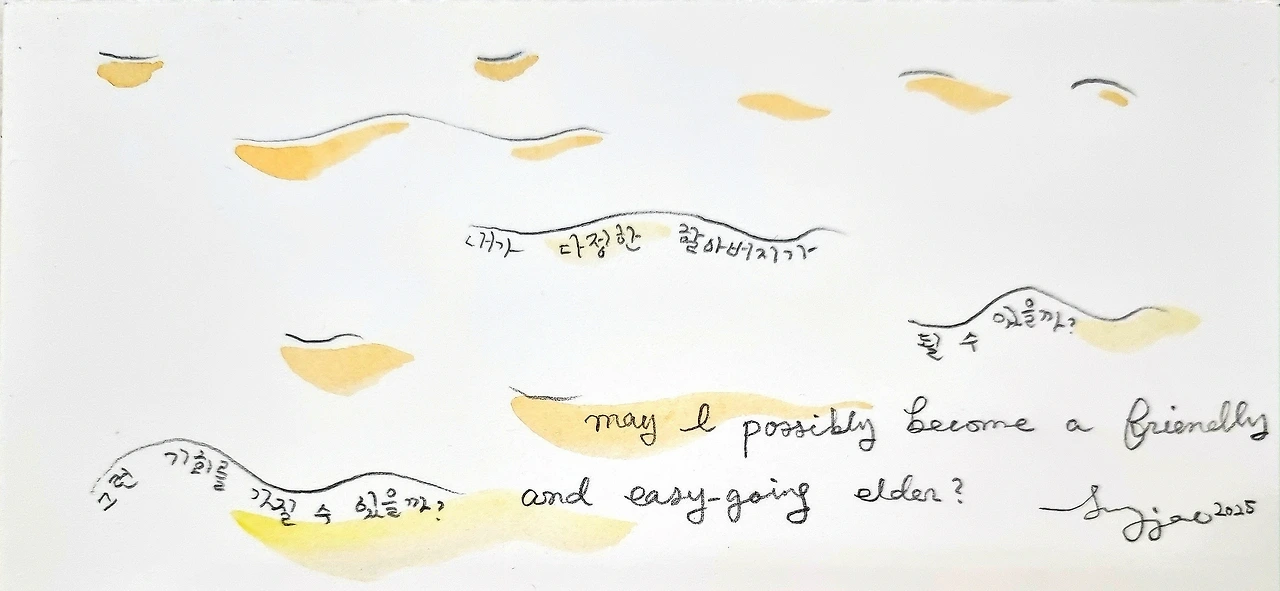 내가 다정한 할아버지가
될 수 있을까?
may I possibly become a friendly
그런 기회를 가질 수 있을까?
and easy-going elder?
2025